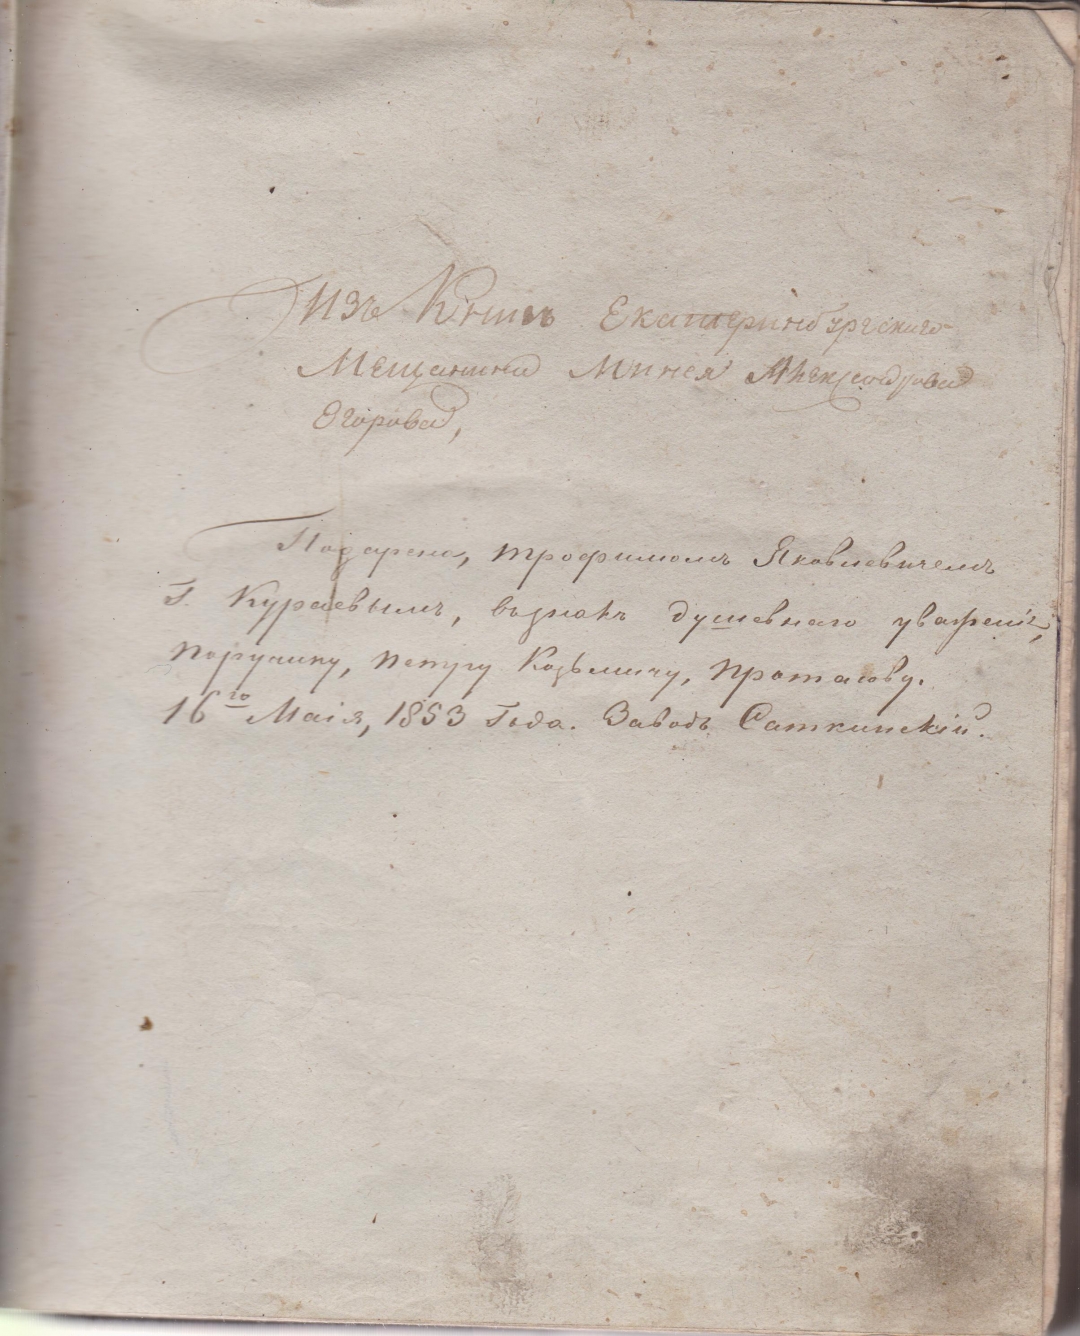 Изъ Книгъ Екатеринбургскаго
Мещанина Минея Александрова
Егорова,
Подарена, трофимомъ Яковлевичемъ
Г. Кураевымъ, възнакъ душевнаго уваженія,
порутчику, петру Козьмичу, протасову.
16го Маія, 1853 Года. Заводъ Саткинскій.